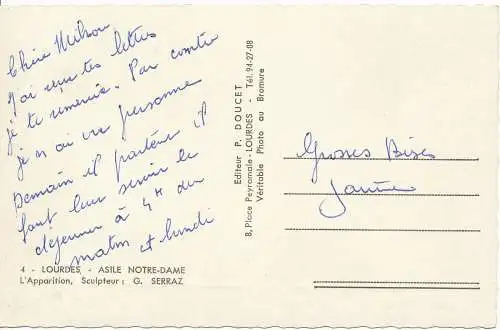 Chère
J'ai reçu tes lettres
je te remercie. Par contre
je n'ai vu personne
Demain il partent il
faut leur servir le
déjeuner à 4H du
matin et lundi
4 - LOURDES - ASILE NOTRE-DAME
L'Apparition, Sculpteur : G. SERRAZ
Editeur P. DOUCET
8, Place Peyramale - LOURDES - Tél. 94-27-08
Véritable Photo au Bromure
Grosses Bises
Janine